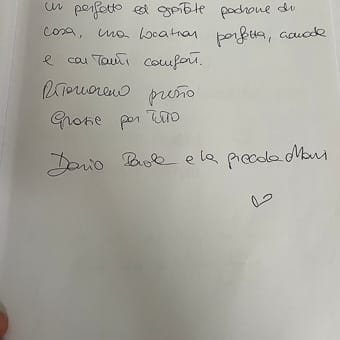 un perfetto ed ospitale padrone di
casa, una location perfetta, comoda
e con tanti comfort.
Ritorneremo presto
Grazie per tutto
Dario Paola e la piccola